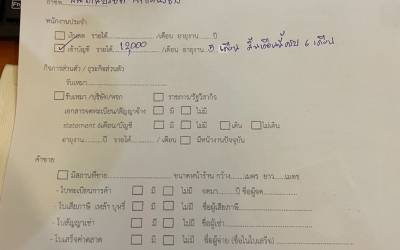 พนักงานประจำ
เงินสด รายได้ /เดือน อายุงาน ปี
เข้าบัญชี รายได้ 12,000 /เดือน อายุงาน 3 เดือน 6 เดือน
กิจการส่วนตัว / ธุรกิจส่วนตัว
รับเหมา
รับเหมา /บริษัท/หจก ราชการ/รัฐวิสากิจ
เอกสารจดทะเบียน/สัญญาจ้าง มี ไม่มี
statement 6เดือน/บัญชี มี ไม่มี เดิน ไม่เดิน
อายุงาน ปี รายได้ / เดือน มีหน้างานปัจจุบัน
ค้าขาย
มีสถานที่ขาย ขนาดหน้าร้าน กว้าง เมตร ยาว เมตร
- ใบทะเบียนการค้า มี ไม่มี จดมา ปี ชื่อผู้จด
- ใบเสียภาษี เหล้า บุหรี่ มี ไม่มี ชื่อผู้เสียภาษี
- ใบสัญญาเช่า มี ไม่มี ชื่อผู้เช่า
- ใบเสร็จค่าตลาด มี ไม่มี ชื่อผู้จ่าย (ชื่อในใบเสร็จ)